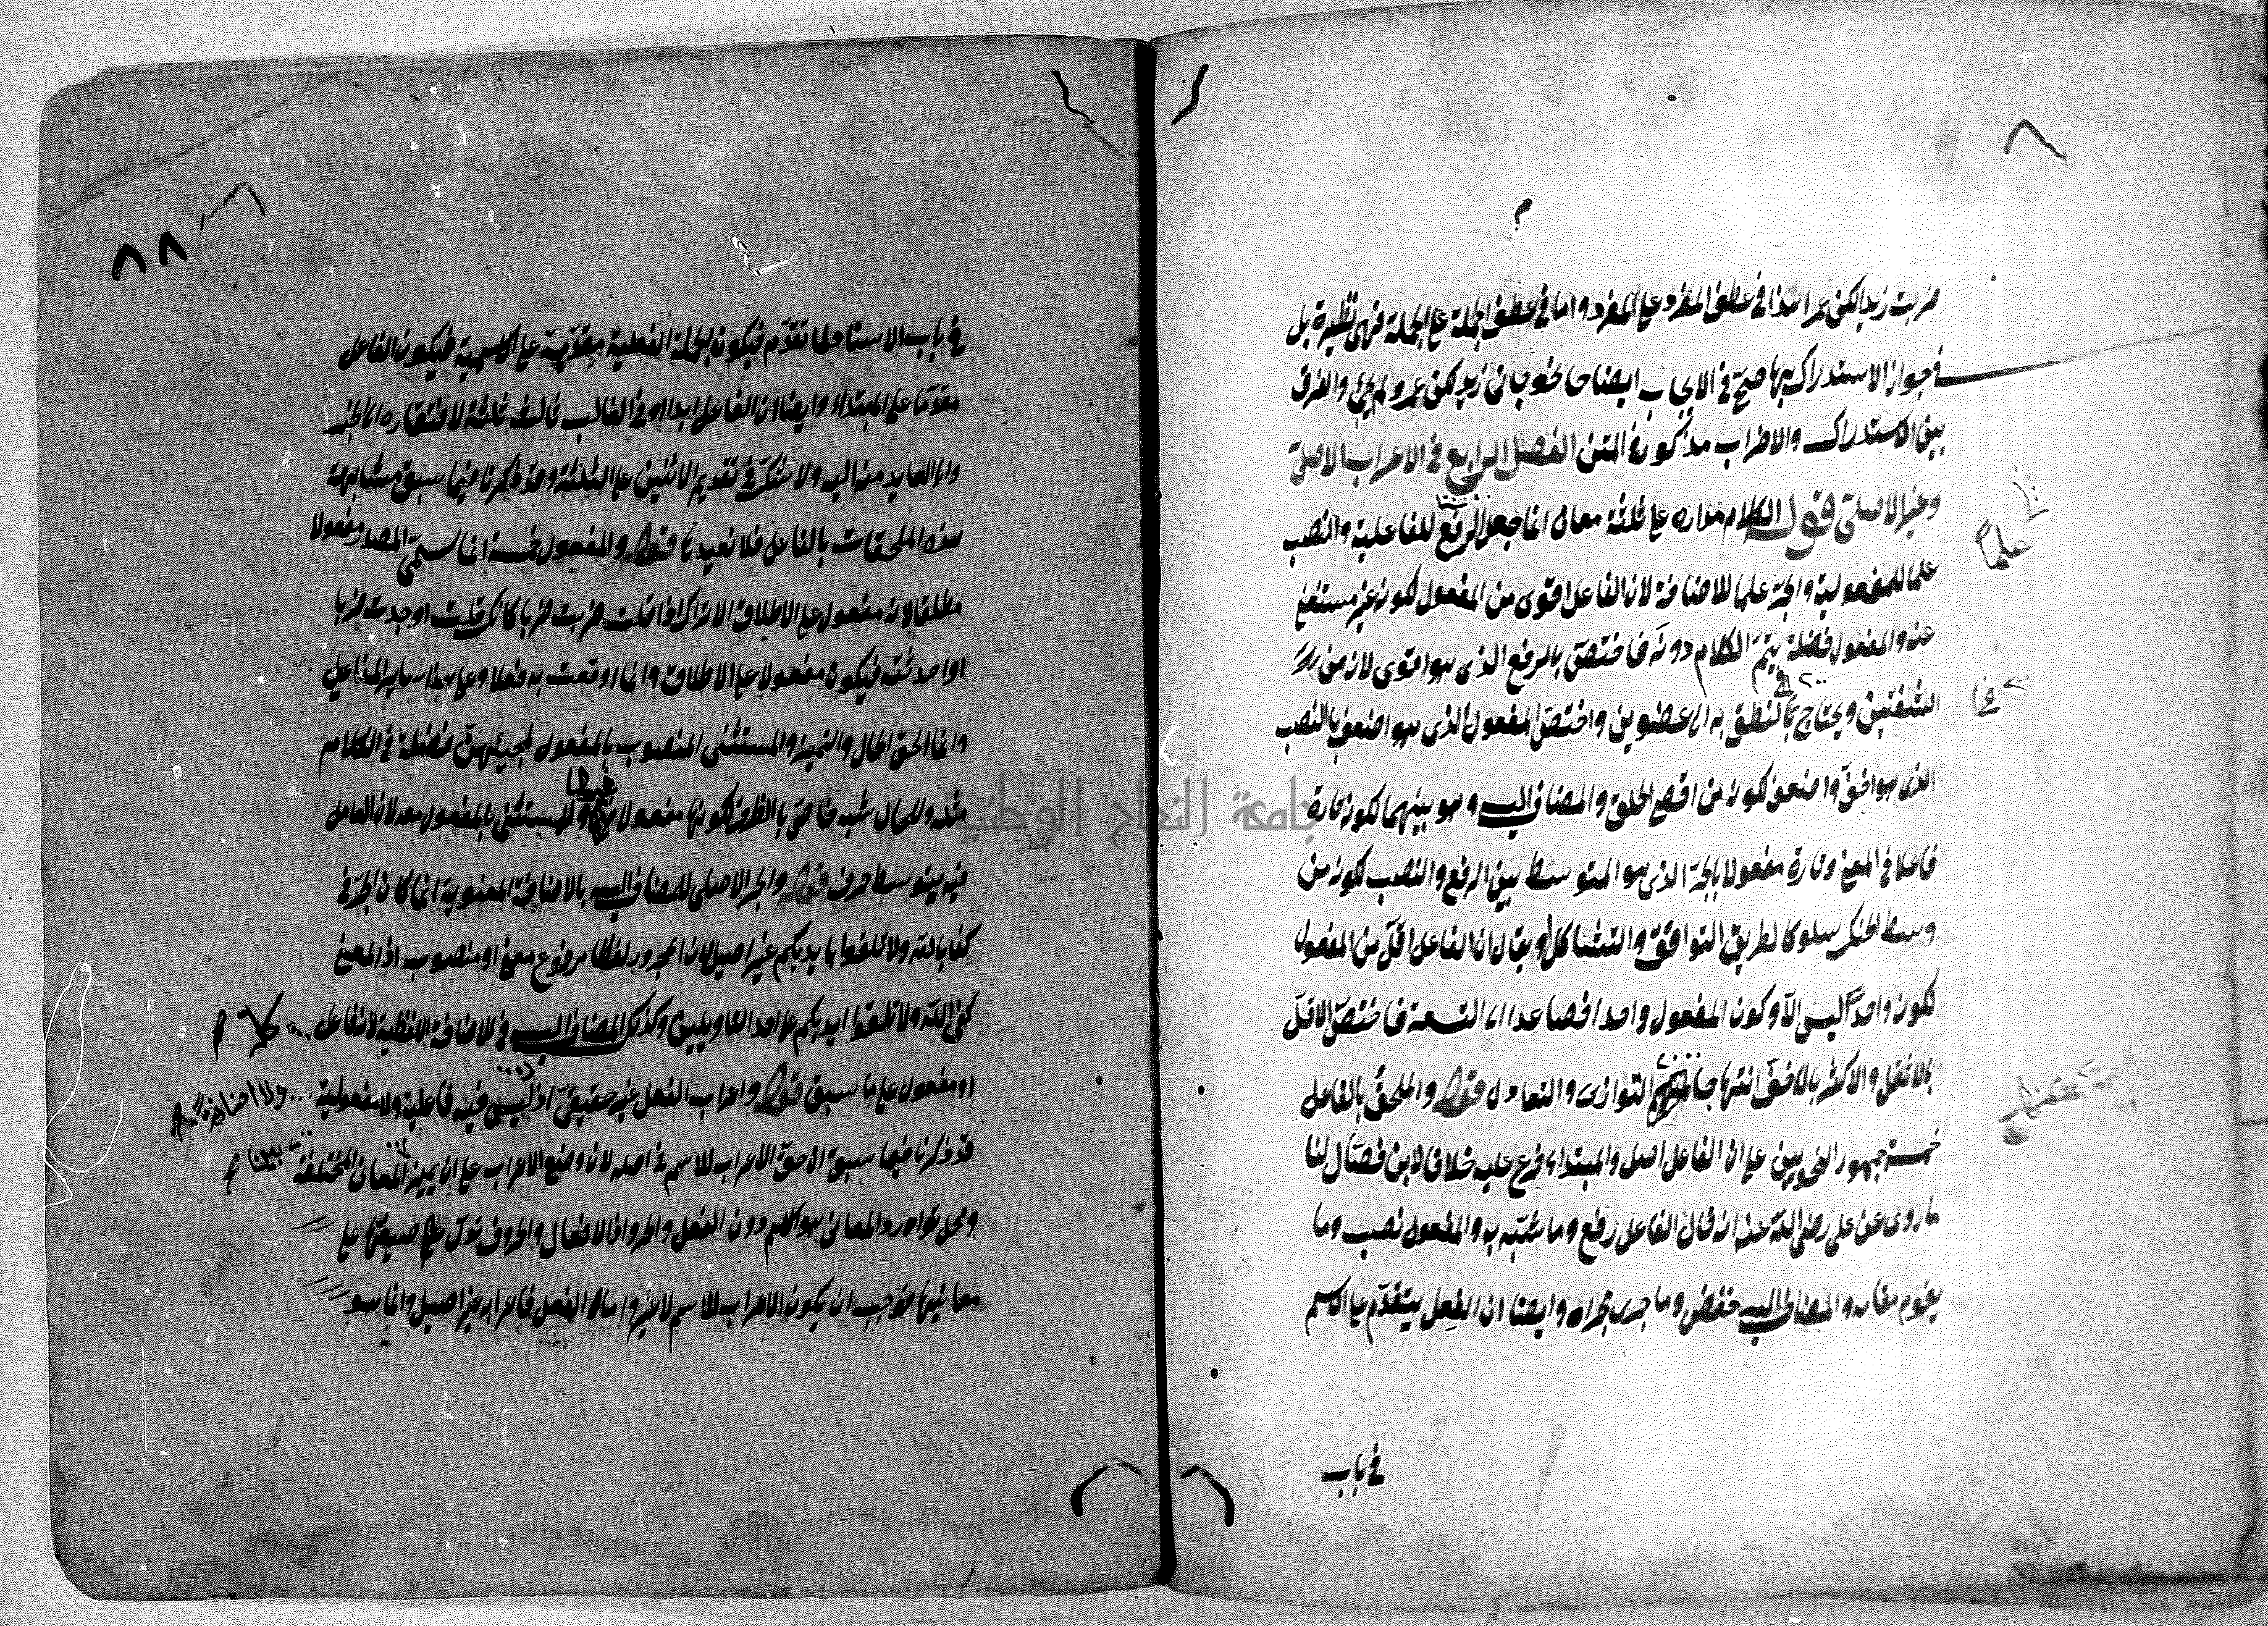 ضربت زيدا لكن عمرا هذا في عطف المفرد على المفرد واما في عطف الجملة على الجملة فهي نظيرة بل
في جواز الاستدراك بها صحّ في الايجاب ايضا نحو جاني زيد لكن عمرو لم يجئ والفرق
بين الاستدراك والاضراب مذكور في المتن الفصل الرابع في الاعراب الاصلي
وغير الاصلي قوله الكلام مداره على ثلثة معان انما جعل الرفع للفاعلية والنصب
علما للمفعولية والجر علما للاضافة لان الفاعل اقوى من المفعول لكونه غير مستغنى
عنه والمفعول فضلة يتم الكلام دونه فاختص بالرفع الذي هو اقوى لانه من
الشفتين ويحتاج في النطق به الى عضوين واختص المفعول الذي هو اضعف بالنصب
الذي هو اخف واضعف لكونه من اقصى الحلق والمضاف اليه وهو بينهما لكونه تارة
فاعلا في المعنى وتارة مفعولا بالجر الذي هو المتوسط بين الرفع والنصب لكونه من
وسط الحنك سلوكا لطريق التوافق والتشاكل او يقال ان الفاعل اقل من المفعول
لكونه واحدا ليس الا وكون المفعول واحدا فصاعدا الى التسعة فاختص الاقل
بالاثقل والاكثر بالاخف انتهاجا التوازى والتعادل قوله والملحق بالفاعل
خمسة جمهور النحويين على ان الفاعل اصل والمبتداء فرع عليه خلافا لابن فضال لنا
ما روى عن على رضى الله عنه انه قال الفاعل رفع وما شبّه به والمفعول نصب وما
يقوم مقامه والمضاف اليه خفض وما جرى مجراه وايضا ان الفعل يتقدم على الاسم
في باب
في باب الاسناد لما تقدم فيكون الجملة الفعلية مقدمة على الاسمية فيكون الفاعل
مقدما على المبتداء وايضا ان الفاعل ابدا او في الغالب ثالث ثلثة لافتقاره الى الخبر
والى العايد منه اليه ولا شك في تقديم الاثنين على الثلثة وقد ذكرنا فيما سبق مشابهة
هذه الملحقات بالفاعل فلا نعيدها قوله والمفعول خمسة انما سمى المصدر مفعولا
مطلقا لانه مفعول على الاطلاق الا تراك اذا قلت ضربت ضربا كانك قلت اوجدت ضربا
او احدثته فيكون مفعولا على الاطلاق وانما اوقعت به فعلا وعلى هذا ساير المفاعيل
وانما الحق الحال والتميز والمستثنى المنصوب بالمفعول لمجيئهن فضلة في الكلام
مثله وللحال شبه خاص بالظرف لكونها مفعولا فيها وللمستثنى بالمفعول معه لان العامل
فيه بتوسط حرف قوله والجر الاصلى للمضاف اليه بالاضافة المعنوية انما كان الجر في
كفى بالله ولا تلقوا بايديكم غير اصيل لان المجرور لفظا مرفوع معنى او منصوب اذ المعنى
كفى الله ولا تلقوا ايديكم على احد التاويلين وكذلك المضاف اليه في الاضافة اللفظية لانه فاعل
او مفعول على ما سبق قوله واعراب الفعل غير حقيقى اذ ليس فيه فاعلية ولا مفعولية ولا اضافة
قد ذكرنا فيما سبق ان حق الاعراب للاسم في اصله لان وضع الاعراب على ان يميز بين المعانى المختلفة
ومحل توارد المعانى هو الاسم دون الفعل والحرف اذ الافعال والحروف تدل صيغتها على
معانيها فوجب ان يكون الاعراب للاسم لا غير واما الفعل فاعرابه غير اصيل وانما هو